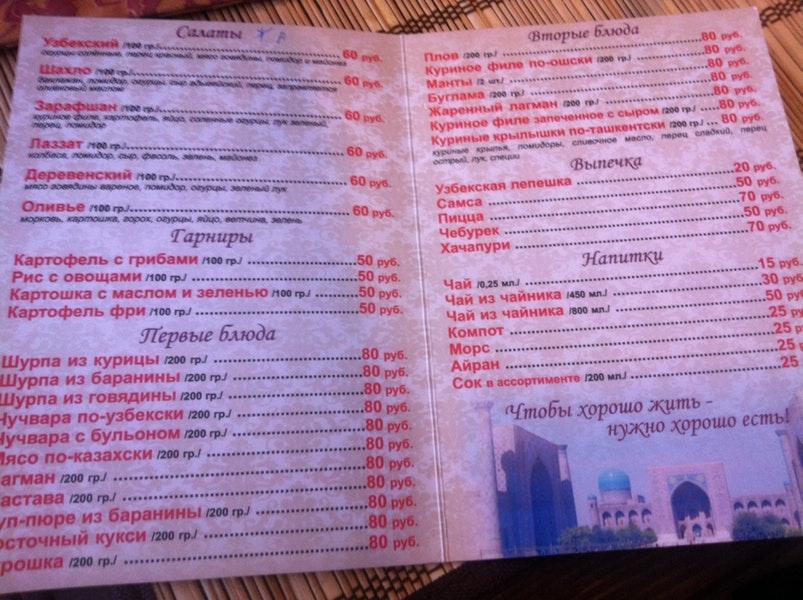 Салаты
Узбекский /100 гр./ 60 руб.
огурцы солёные, перец красный, мясо говядины, помидор и майонез
Шахло /100 гр./ 60 руб.
баклажан, помидор, огурцы, сыр адыгейский, перец, заправляется
оливковым маслом
Зарафшан /100 гр./ 60 руб.
куриное филе, картофель, яйцо, соленные огурцы, лук зеленый,
перец, помидор
Лаззат /100 гр./ 60 руб.
колбаса, помидор, сыр, фасоль, зелень, майонез
Деревенский /100 гр./ 60 руб.
мясо говядины вареное, помидор, огурцы, зеленый лук
Оливье /100 гр./ 60 руб.
морковь, картошка, горох, огурцы, яйцо, ветчина, зелень
Гарниры
Картофель с грибами /100 гр./ 50 руб.
Рис с овощами /100 гр./ 50 руб.
Картошка с маслом и зеленью /100 гр./ 50 руб.
Картофель фри /100 гр./ 50 руб.
Первые блюда
Шурпа из курицы /200 гр./ 80 руб.
Шурпа из баранины /200 гр./ 80 руб.
Шурпа из говядины /200 гр./ 80 руб.
Чучвара по-узбекски /200 гр./ 80 руб.
Чучвара с бульоном /200 гр./ 80 руб.
Мясо по-казахски /200 гр./ 80 руб.
агман /200 гр./ 80 руб.
астава /200 гр./ 80 руб.
уп-пюре из баранины /200 гр./ 80 руб.
осточный кукси /200 гр./ 80 руб.
рошка /200 гр./ 80 руб.
Вторые блюда
Плов /200 гр./ 80 руб.
Куриное филе по-ошски /200 гр./ 80 руб.
Манты /2 шт./ 80 руб.
Буглама /200 гр./ 80 руб.
Жаренный лагман /200 гр./ 80 руб.
Куриное филе запеченное с сыром /200 гр./ 80 руб.
Куриные крылышки по-ташкентски /200 гр./ 80 руб.
куриные крылья, помидоры, сливочное масло, перец сладкий, перец
острый, лук, специи
Выпечка
Узбекская лепешка 20 руб.
Самса 50 руб.
Пицца 70 руб.
Чебурек 50 руб.
Хачапури 70 руб.
Напитки
Чай /0,25 мл./ 15 руб.
Чай из чайника /450 мл./ 30 руб.
Чай из чайника /800 мл./ 50 руб.
Компот 25 ру
Морс 25 ру
Айран 25 ру
Сок в ассортименте /200 мл./ 25
Чтобы хорошо жить -
нужно хорошо есть!